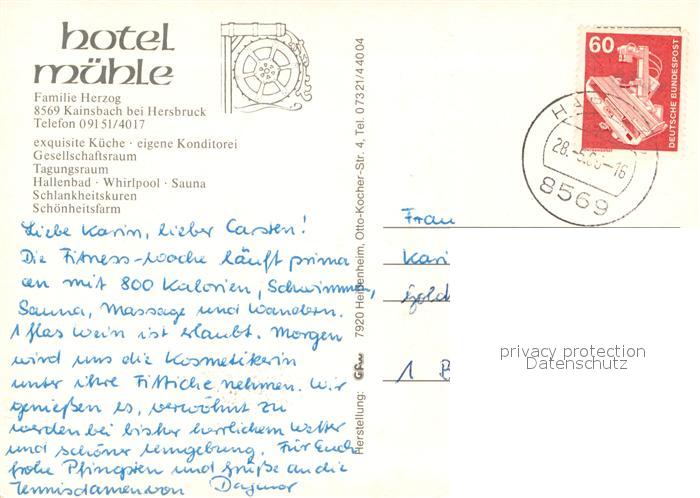 hotel
mühle
Familie Herzog
8569 Kainsbach bei Hersbruck
Telefon 09151/4017
exquisite Küche · eigene Konditorei
Gesellschaftsraum
Tagungsraum
Hallenbad · Whirlpool · Sauna
Schlankheitskuren
Schönheitsfarm
Liebe Karin, lieber Carsten!
Die Fitness-woche läuft prima
an mit 800 Kalorien, Schwimmen,
Sauna, Massage und Wandern.
1 Glas Wein ist erlaubt. Morgen
wird uns die Kosmetikerin
unter ihre Fittiche nehmen. Wir
genießen es, verwöhnt zu
werden bei bisher herrlichem Wetter
und schöner Umgebung. Für Euch
frohe Pfingsten und Grüße an die
Tennisdamen von Dagmar
Herstellung: 7920 Heidenheim, Otto-Kocher-Str. 4, Tel. 07321/44004
60
DEUTSCHE BUNDESPOST
28.-5.
-16
8569
Frau
Kari
Gold
1 B
privacy protection
Datenschutz